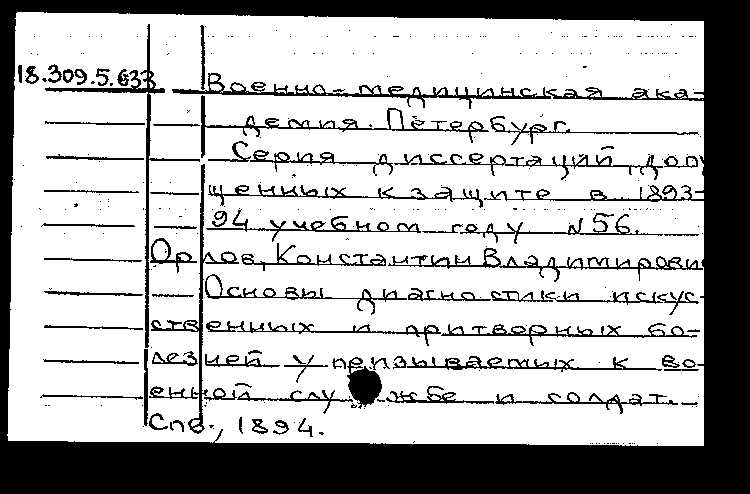 18.309.5.633 Военно-медицинская ака-
демия. Петербург.
Серия диссертаций, допу
щенных к защите в 1893-
94 учебном году N 56.
Орлов, Константин Владимирови
Основы диагностики искус-
ственных и притворных бо-
лезней у призываемых к во-
енной службе и солдат.
Спб., 1894.